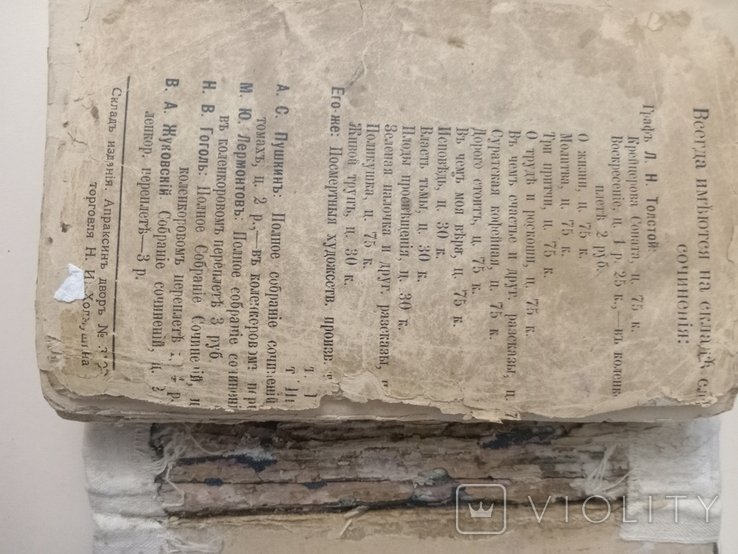 Всегда имѣются на складѣ
сочиненія:
Графъ Л. Н. Толстой:
Крейцерова Соната, ц. 75 к.
Воскресеніе, ц. 1 р. 25 к.,—въ коленк
плетѣ 2 руб.
О жизни, ц. 75 к.
Молитва, ц. 75 к.
Три притчи, ц. 75 к.
О трудѣ и роскоши, ц. 75 к.
Въ чемъ счастье и друг. разсказы, ц. 7
Суратская кофейная, ц. 75 к.
Дорого стоитъ, ц. 75 к.
Въ чемъ моя вѣра, ц. 75 к.
Исповѣдь, ц. 30 к.
Власть тьмы, ц. 30 к.
Плоды просвѣщенія, ц. 30 к.
Зеленая палочка и друг. разсказы,
Поликушка, ц. 75 к.
Живой трупъ, ц. 30 к.
Его-же: Посмертныя художеств. произв.
А. С. Пушкинъ: Полное собраніе сочиненій
томахъ, ц. 2 р.,—въ коленкоровомъ пер
М. Ю. Лермонтовъ: Полное собраніе сочиненій
въ коленкоровомъ переплетѣ 3 руб.
Н. В. Гоголь: Полное Собраніе Сочиненій, ц
коленкоровомъ переплетѣ р.
В. А. Жуковскій Собраніе сочиненій, ц. 2
ленкор. переплетѣ—3 р.
Складъ изданія. Апраксинъ дворъ №
торговля Н. И. Холмушина
VIOLITY